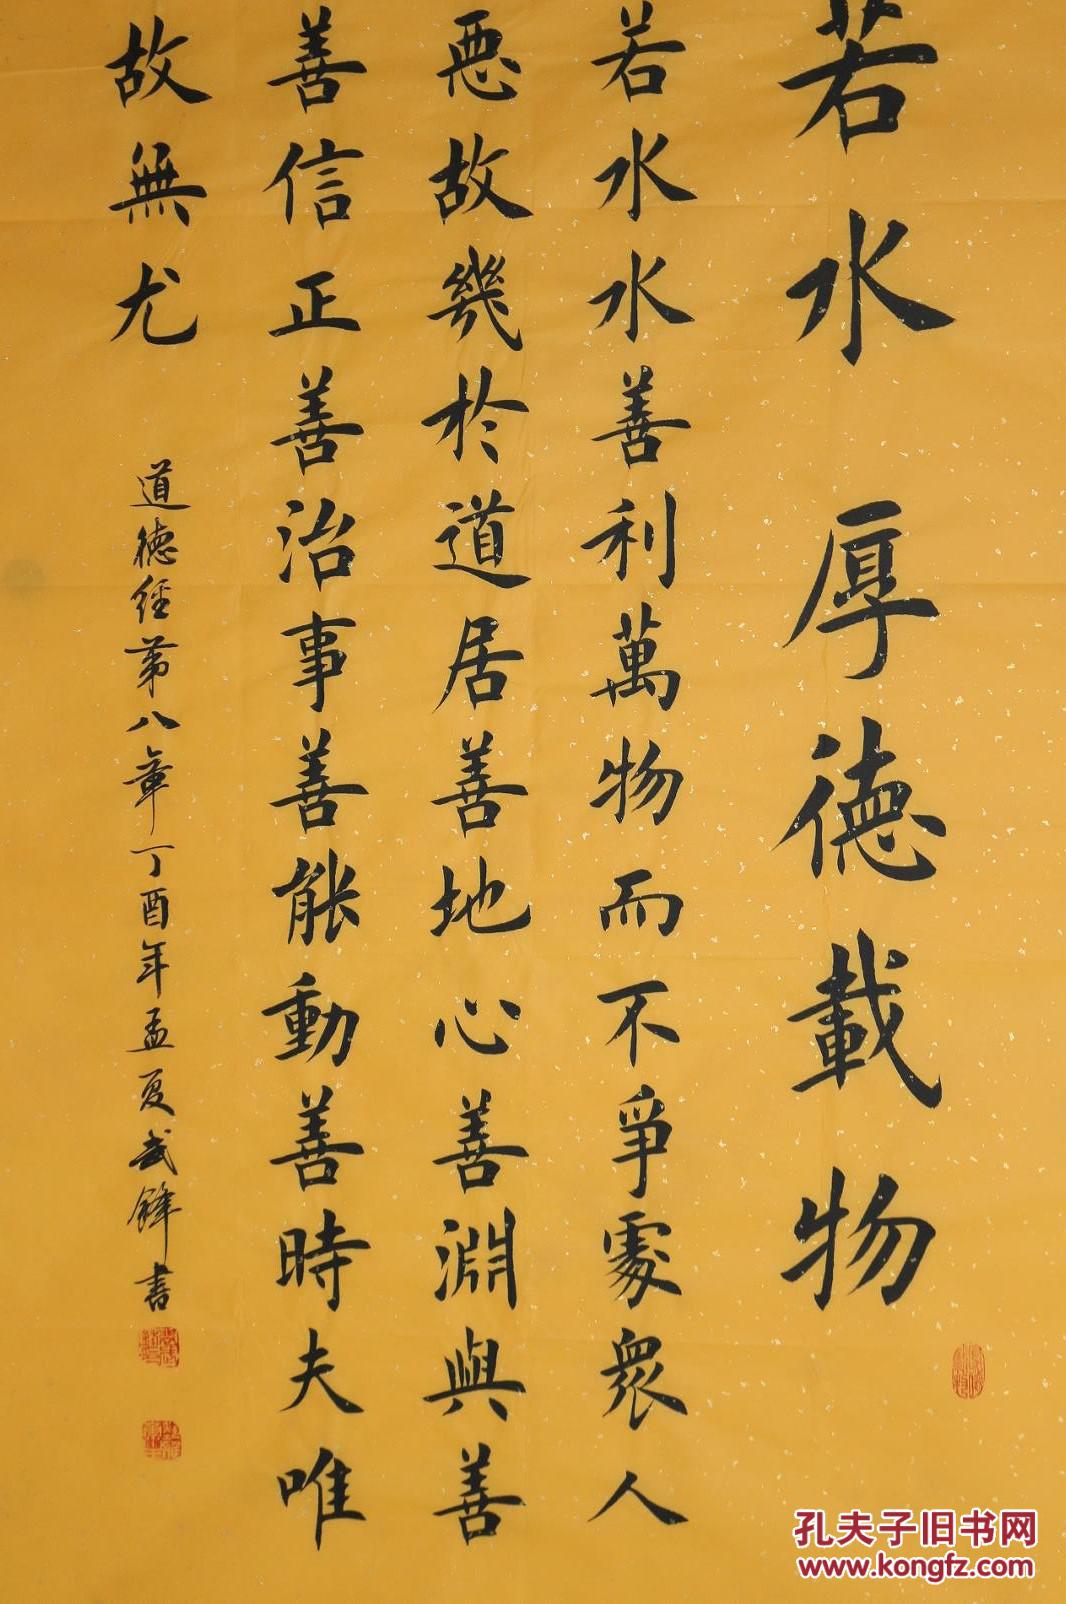 若水厚德載物
若水水善利萬物而不爭處衆人
惡故幾於道居善地心善淵與善
善信正善治事善能動善時夫唯
故無尤
道德經第八章丁酉年孟夏武鋒書
孔夫子旧书网
www.kongfz.com